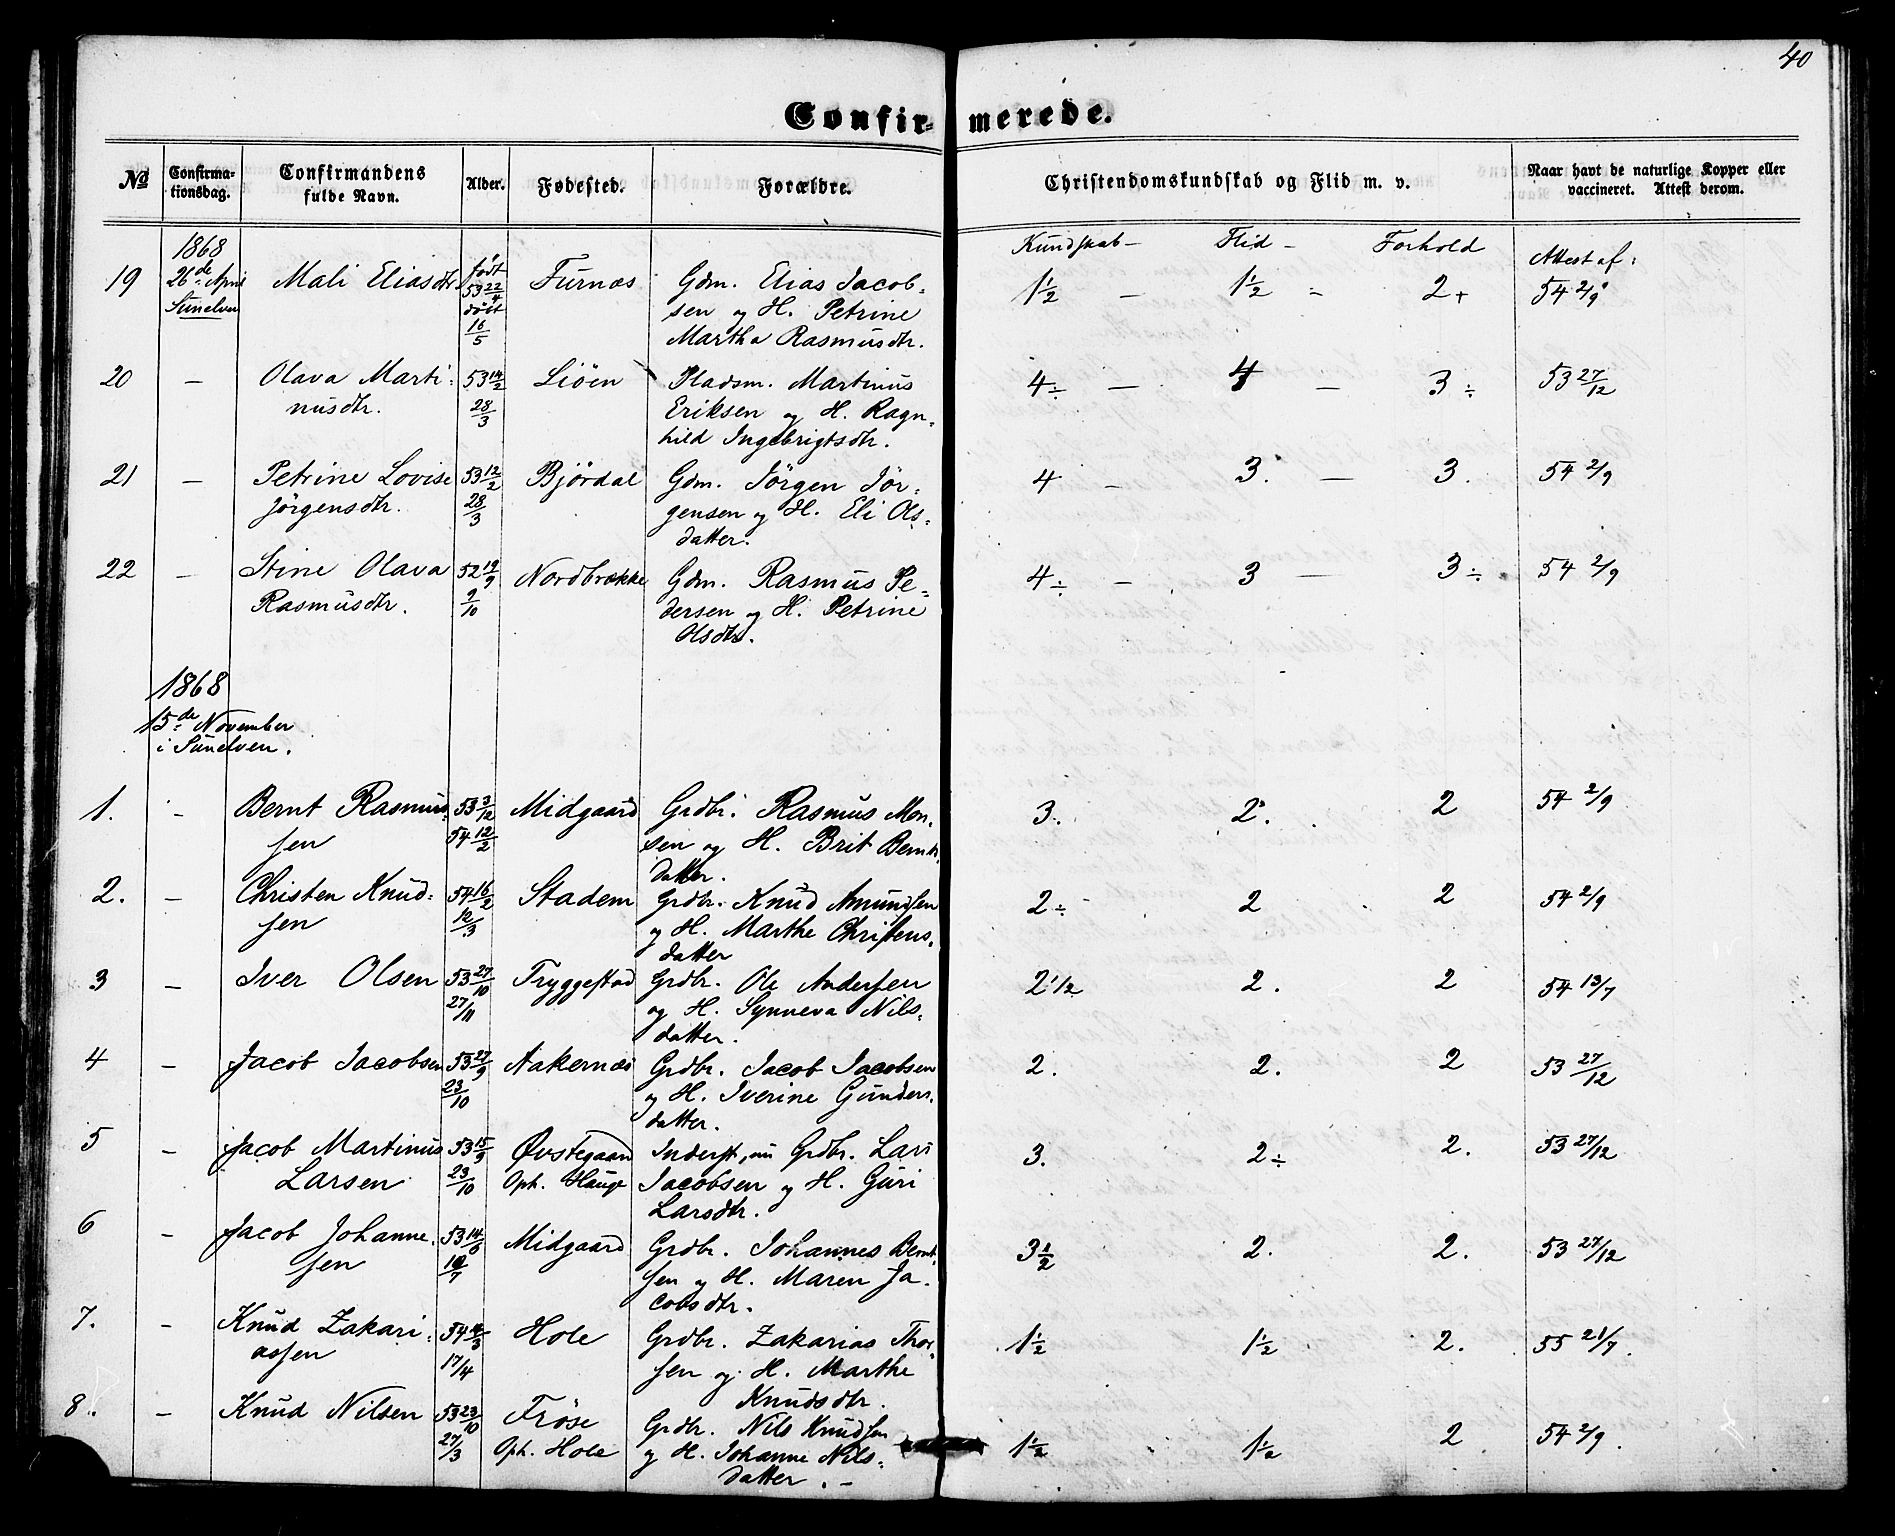 40
Confirmerede.
No Confirmationsdag. Confirmandens fulde Navn. Alder. Fødested. Forældre. Christendomskundskab og Flid m. v. Naar havt de naturlige Kopper eller vaccineret. Attest derom.
1868 Kundskab - Flid - Forhold Attest af:
19 26de April Mali Eliasdtr født 53 22/4 Furnæs Gdm. Elias Jacob- 1½ — 1½ = 2+ 54 2/9
Sunelven døbt 16/5 sen og H. Petrine
Martha Rasmusdtr.
20 — Olava Marti- 53 14/2 Liøen Pladsm. Martinus 4÷ — 4 — 3÷ 53 27/12
nusdtr. 28/3 Eriksen og H. Ragn-
hild Ingebrigtsdtr.
21 — Petrine Lovise 53 12/2 Bjørdal Gdm. Jörgen Jör- 4 — 3. — 3. 54 2/9
Jörgensdtr. 28/3 gensen og H. Eli Ols-
datter.
22 — Stine Olava 52 19/9 Nordbrække Gdm. Rasmus Pe- 4÷ — 3 — 3÷ 54 2/9
Rasmusdtr. 9/10 dersen og H. Petrine
Olsdtr.
1868
15de November
i Sunelven.
1. - Bernt Rasmus- 53 3/12 Midgaard Grdbr. Rasmus Mon- 3. 2. 2 54 2/9
sen 54 12/2 sen og H. Brit Bernts-
datter.
2. — Christen Knud- 54 16/2 Stadem Grdbr. Knud Amundsen 2÷ 2 2 54 2/9
sen 12/3 og H. Marthe Christens-
datter
3 — Iver Olsen 53 27/10 Tryggestad Grdbr. Ole Andersen 2 1/2 2. 2 54 13/7
27/11 og H. Synneva Nils-
datter.
4 — Jacob Jacobsen 53 27/9 Aakernæs Grdbr. Jacob Jacobsen 2. 2. 2 53 27/12
23/10 og H. Iverine Gunders-
datter.
5 — Jacob Martinus 53 15/9 Øvstegaard Inderst, nu Grdbr. Lars 3. 2÷ 2. 53 27/12
Larsen 23/10 Oph. Hauge Jacobsen og H. Guri
Larsdtr.
6 — Jacob Johanne- 53 14/6 Midgaard Grdbr. Johannes Bernt- 3½ 2. 2. 53 27/12
sen 10/7 sen og H. Maren Ja-
cobsdtr.
7. — Knud Zakari- 54 Hole Grdbr. Zakarias Thor- 1½ 1½ 2. 55 21/7.
assen 17/4 sen og H. Marthe
Knudsdtr.
8. — Knud Nilsen 53 23/10 Fröse Grdbr. Nils Knudsen 1½ 1½ 2 54 2/9.
27/3 Oph. Hole og H. Johanne Nils-
datter. —